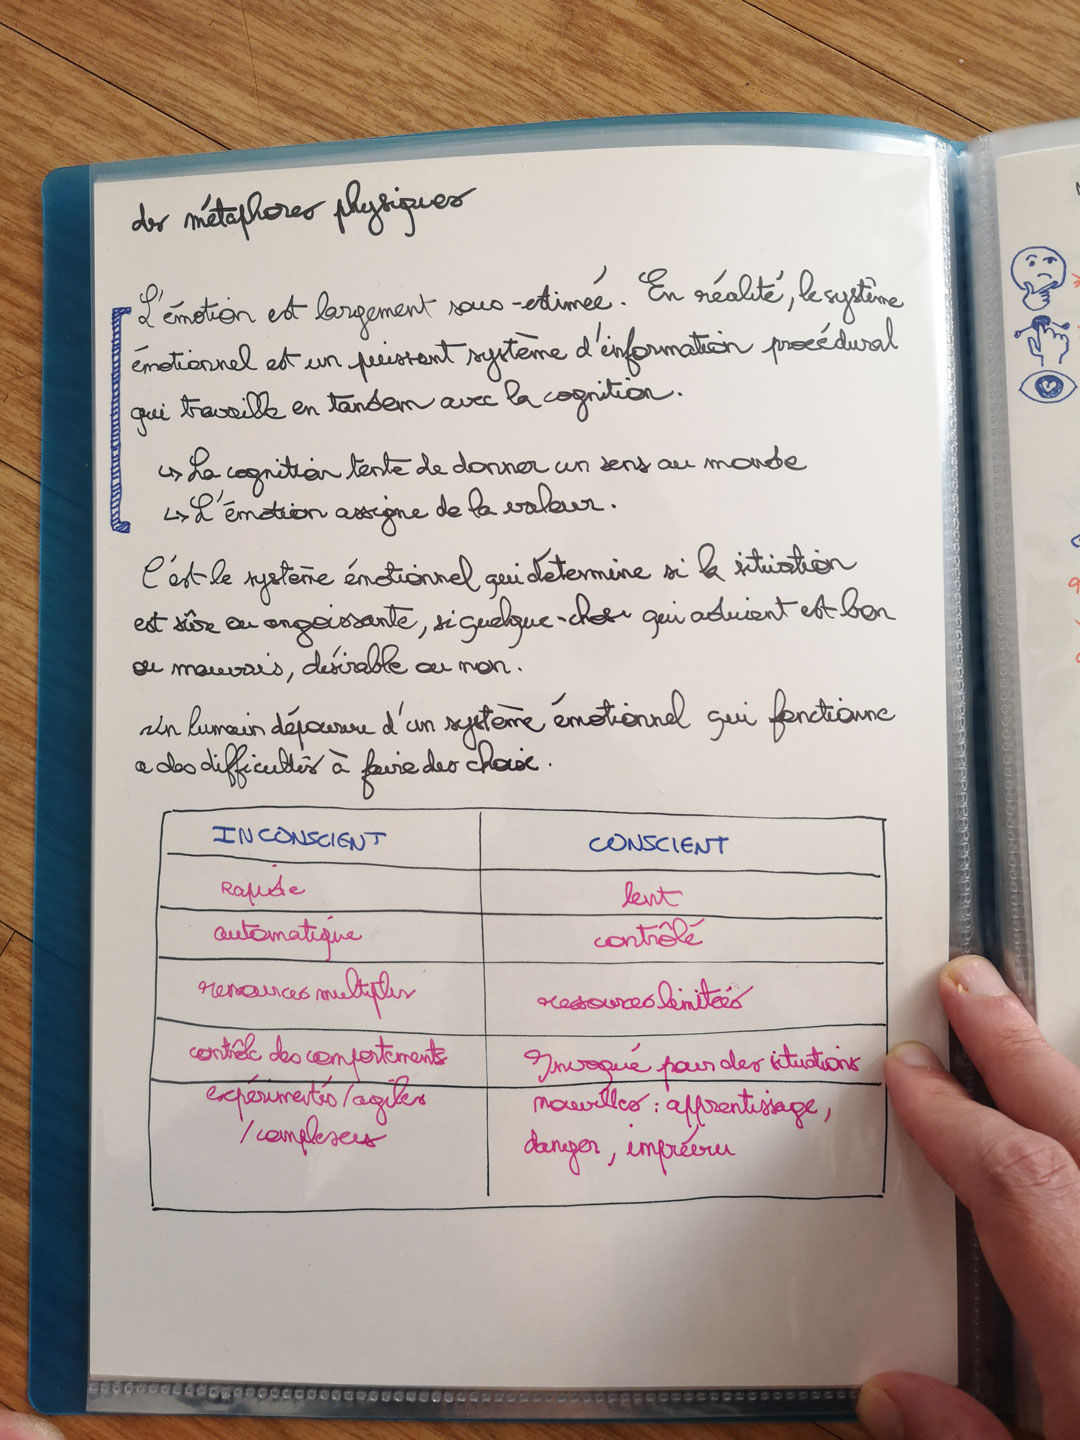 des métaphores physiques
L'émotion est largement sous-estimée. En réalité, le système
émotionnel est un puissant système d'information procédural
qui travaille en tandem avec la cognition.
↳ La cognition tente de donner un sens au monde
↳ L'émotion assigne de la valeur.
C'est le système émotionnel qui détermine si la situation
est sûre ou angoissante, si quelque-chose qui advient est bon
ou mauvais, désirable ou non.
Un humain dépourvu d'un système émotionnel qui fonctionne
a des difficultés à faire des choix.
INCONSCIENT CONSCIENT
Rapide lent
automatique contrôlé
ressources multiples ressources limitées
contrôle des comportements Invoqué pour des situations
expérimentés/agiles nouvelles : apprentissage,
/complexes danger, imprévu